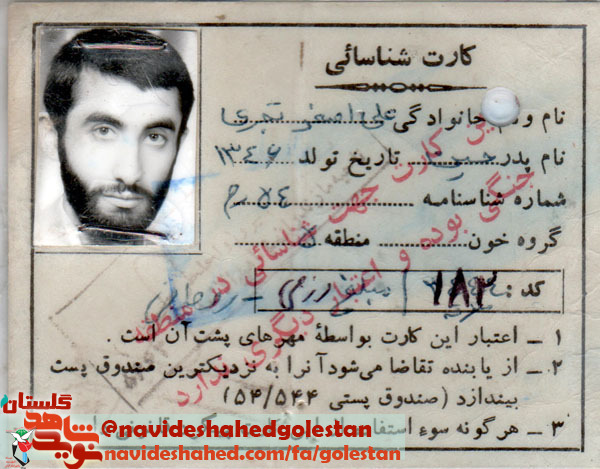 کارت شناسائی
نام و نام خانوادگی علی اصغر
نام پدر تاریخ تولد ۱۳۴۶
شماره شناسنامه ۵٤
گروه خون منطقه ۵
کد : ۱۸۳ رزمی
این کارت جهت شناسائی در منطقه
جنگی بوده و اعتبار دیگری ندارد
۱ ـ اعتبار این کارت بواسطهٔ مهرهای پشت آن است .
۲ ـ از یابنده تقاضا می‌شود آنرا به نزدیکترین صندوق پست
بیندازد (صندوق پستی ۵۴/۵۴۴)
۳ ـ هرگونه سوء استفاده
گلستان
نوید شاهد
@navideshahedgolestan
navideshahed.com/fa/golestan